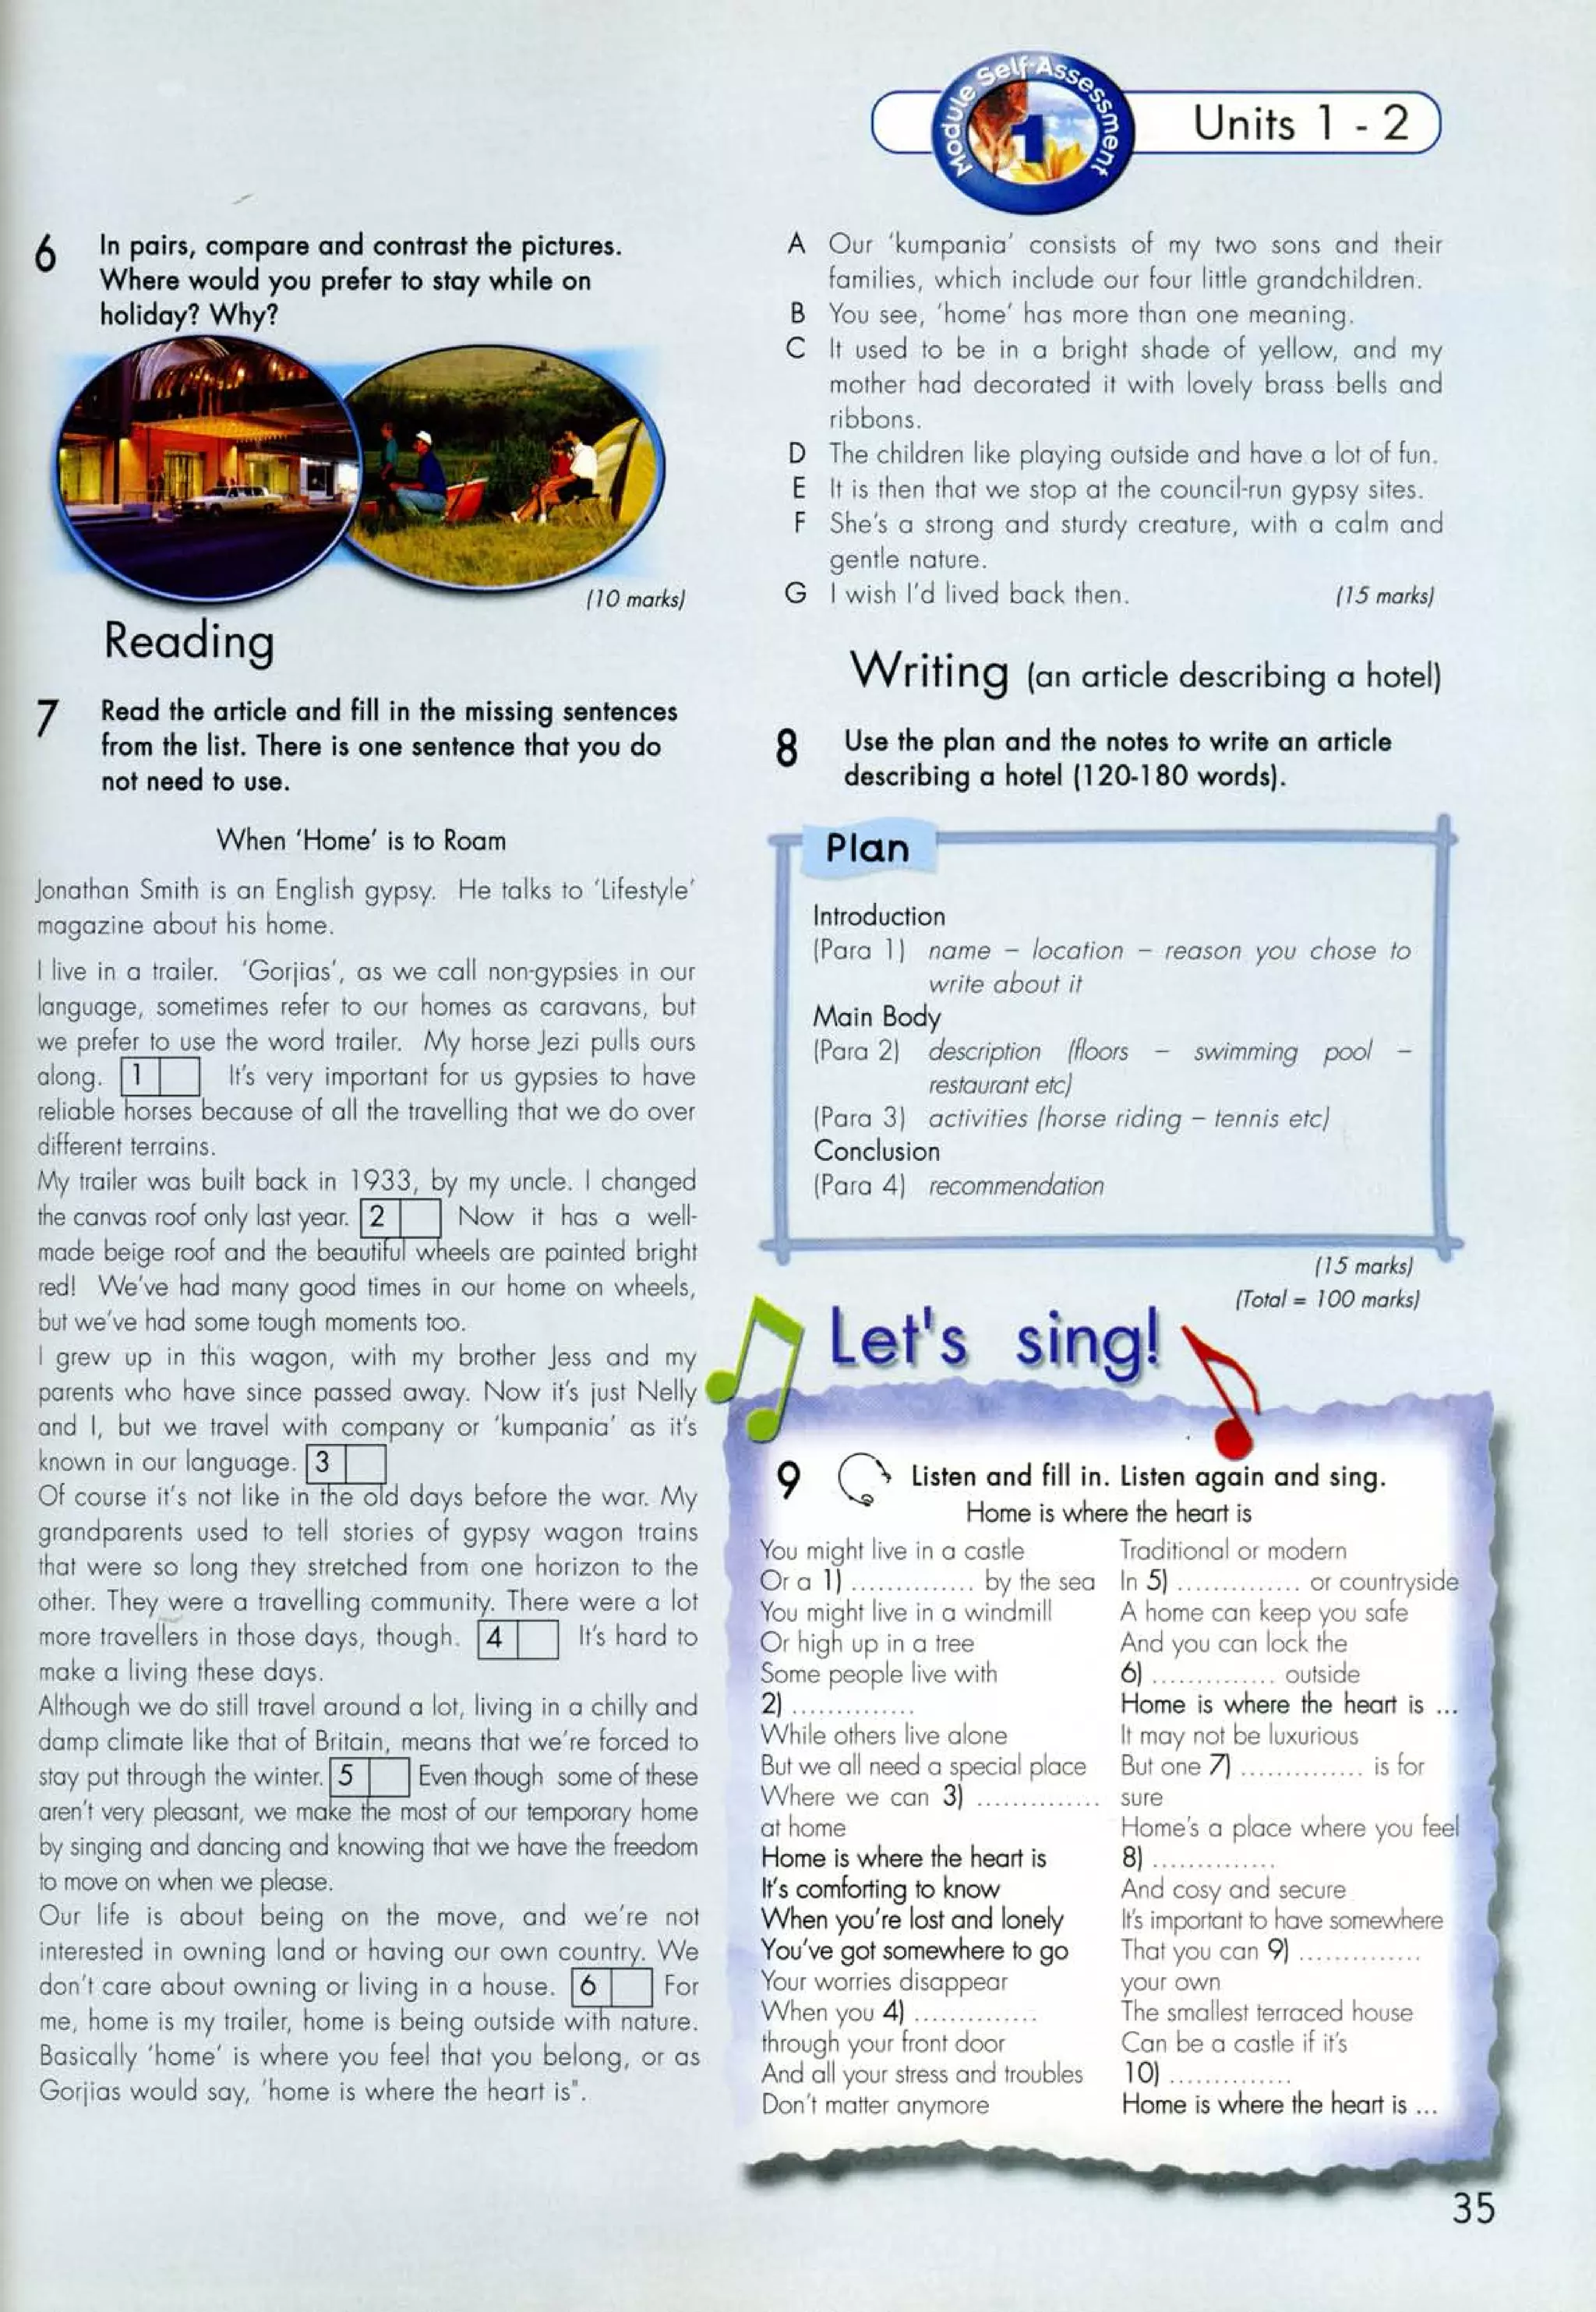 Module Self-Assessment
1
Units 1 - 2
6 In pairs, compare and contrast the pictures.
Where would you prefer to stay while on
holiday? Why?
(10 marks)
Reading
7 Read the article and fill in the missing sentences
from the list. There is one sentence that you do
not need to use.
When 'Home' is to Roam
Jonathan Smith is an English gypsy. He talks to 'Lifestyle'
magazine about his home.
I live in a trailer. 'Gorjias', as we call non-gypsies in our
language, sometimes refer to our homes as caravans, but
we prefer to use the word trailer. My horse Jezi pulls ours
along. 1 It's very important for us gypsies to have
reliable horses because of all the travelling that we do over
different terrains.
My trailer was built back in 1933, by my uncle. I changed
the canvas roof only last year. 2 Now it has a well-
made beige roof and the beautiful wheels are painted bright
red! We've had many good times in our home on wheels,
but we've had some tough moments too.
I grew up in this wagon, with my brother Jess and my
parents who have since passed away. Now it's just Nelly
and I, but we travel with company or 'kumpania' as it's
known in our language. 3
Of course it's not like in the old days before the war. My
grandparents used to tell stories of gypsy wagon trains
that were so long they stretched from one horizon to the
other. They were a travelling community. There were a lot
more travellers in those days, though. 4 It's hard to
make a living these days.
Although we do still travel around a lot, living in a chilly and
damp climate like that of Britain, means that we're forced to
stay put through the winter. 5 Even though some of these
aren't very pleasant, we make the most of our temporary home
by singing and dancing and knowing that we have the freedom
to move on when we please.
Our life is about being on the move, and we're not
interested in owning land or having our own country. We
don't care about owning or living in a house. 6 For
me, home is my trailer, home is being outside with nature.
Basically 'home' is where you feel that you belong, or as
Gorjias would say, 'home is where the heart is".
A Our 'kumpania' consists of my two sons and their
families, which include our four little grandchildren.
B You see, 'home' has more than one meaning.
C It used to be in a bright shade of yellow, and my
mother had decorated it with lovely brass bells and
ribbons.
D The children like playing outside and have a lot of fun.
E It is then that we stop at the council-run gypsy sites.
F She's a strong and sturdy creature, with a calm and
gentle nature.
G I wish I'd lived back then. (15 marks)
Writing (an article describing a hotel)
8 Use the plan and the notes to write an article
describing a hotel (120-180 words).
Plan
Introduction
(Para 1) name – location – reason you chose to
write about it
Main Body
(Para 2) description (floors – swimming pool –
restaurant etc)
(Para 3) activities (horse riding – tennis etc)
Conclusion
(Para 4) recommendation
(15 marks)
(Total = 100 marks)
Let's sing!
9 Listen and fill in. Listen again and sing.
Home is where the heart is
You might live in a castle
Or a 1) ............... by the sea
You might live in a windmill
Or high up in a tree
Some people live with
2) ...............
While others live alone
But we all need a special place
Where we can 3) ...............
at home
Home is where the heart is
It's comforting to know
When you're lost and lonely
You've got somewhere to go
Your worries disappear
When you 4) ...............
through your front door
And all your stress and troubles
Don't matter anymore
Traditional or modern
In 5) ............... or countryside
A home can keep you safe
And you can lock the
6) ............... outside
Home is where the heart is ...
It may not be luxurious
But one 7) ............... is for
sure
Home's a place where you feel
8) ...............
And cosy and secure
It's important to have somewhere
That you can 9) ...............
your own
The smallest terraced house
Can be a castle if it's
10) ...............
Home is where the heart is ...
35